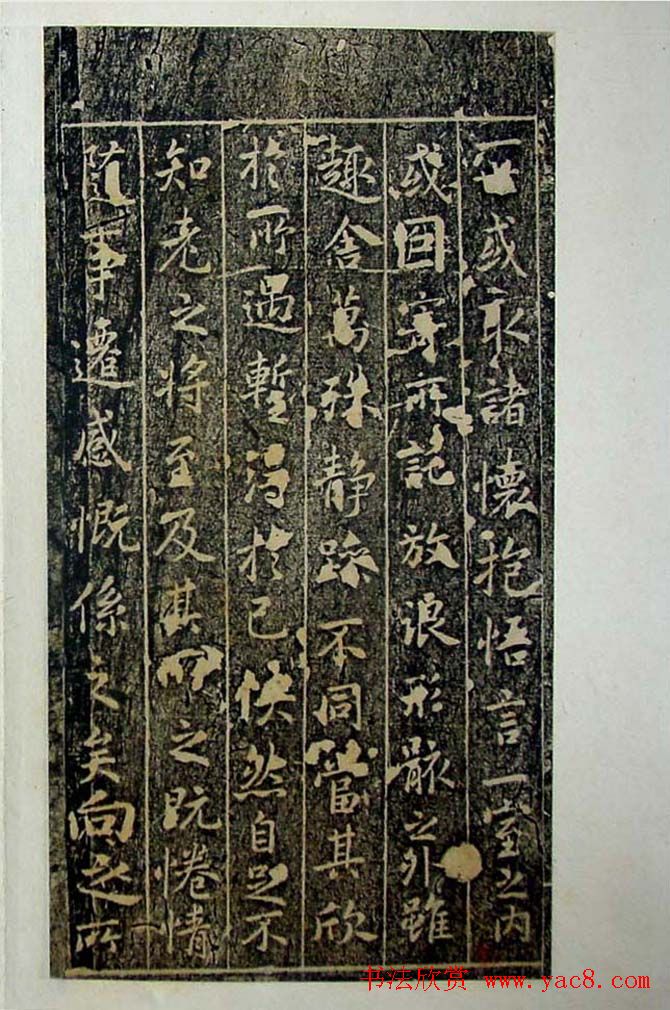 一世或取諸懷抱悟言一室之内
或因寄所託放浪形骸之外雖
趣舍萬殊静躁不同當其欣
於所遇蹔得於己快然自足不
知老之將至及其所之既惓情
隨事遷感慨係之矣向之所
书法欣赏 www.yac8.com